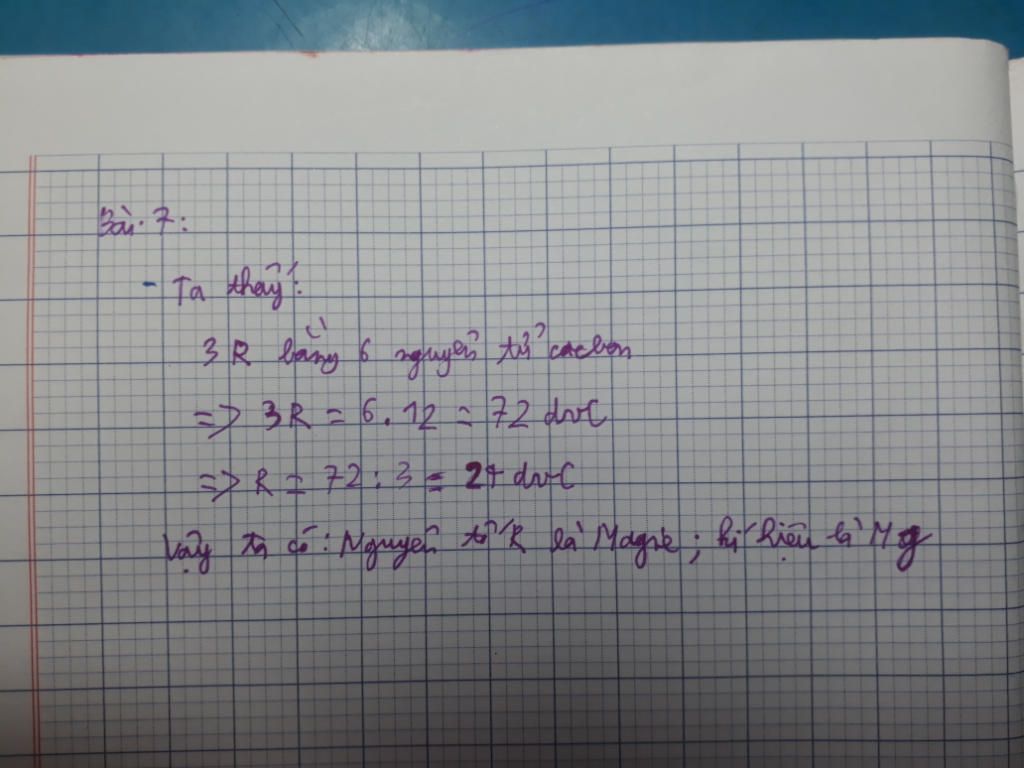 Bài 7:
- Ta thấy:
3 R bằng 6 nguyên tử cacbon
=> 3R = 6.12 = 72 đvC
=> R = 72 : 3 = 24 đvC
Vậy ta có: Nguyên tử R là Magie; kí hiệu là Mg